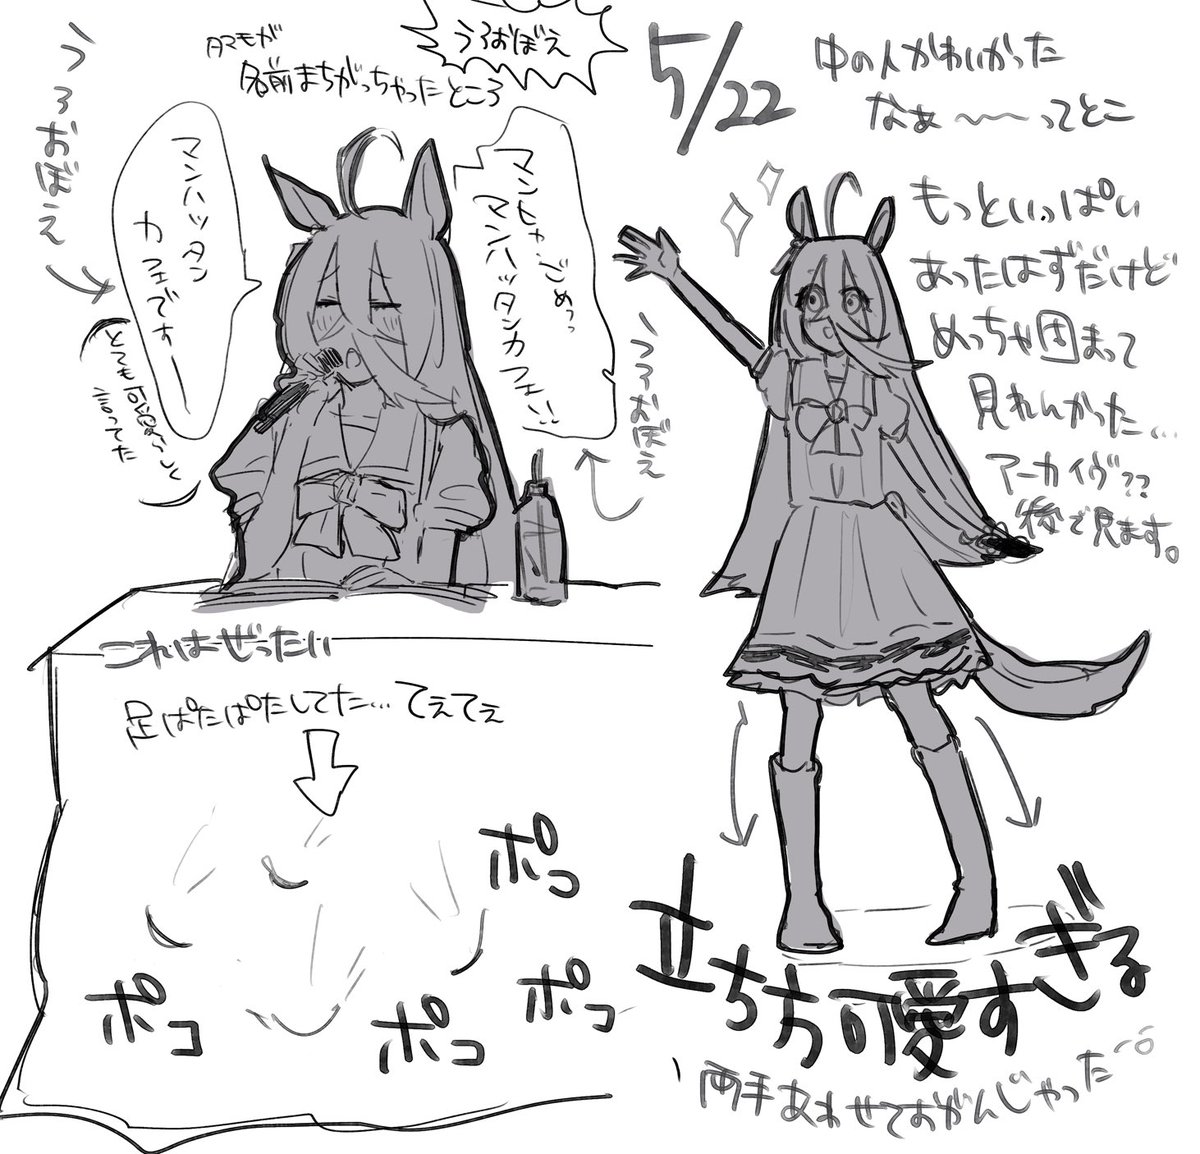 5/22
中の人かわいかった
なぁ〜〜ってとこ
うろおぼえ
タマモが
名前まちがっちゃったところ
うろおぼえ
マンハッタン
カフェですー
マンヒャ、ごめっっ
マンハッタンカフェ!!
うろおぼえ
とても可愛らしく
言ってた
もっといっぱい
あったはずだけど
めっちゃ固まって
見れんかった…
アーカイヴ??
後で見ます。
これはぜったい
足ぱたぱたしてた…てぇてぇ
ポコ
ポコ
ポコ
ポコ
立ち方可愛すぎる
両手あわせておがんじゃった